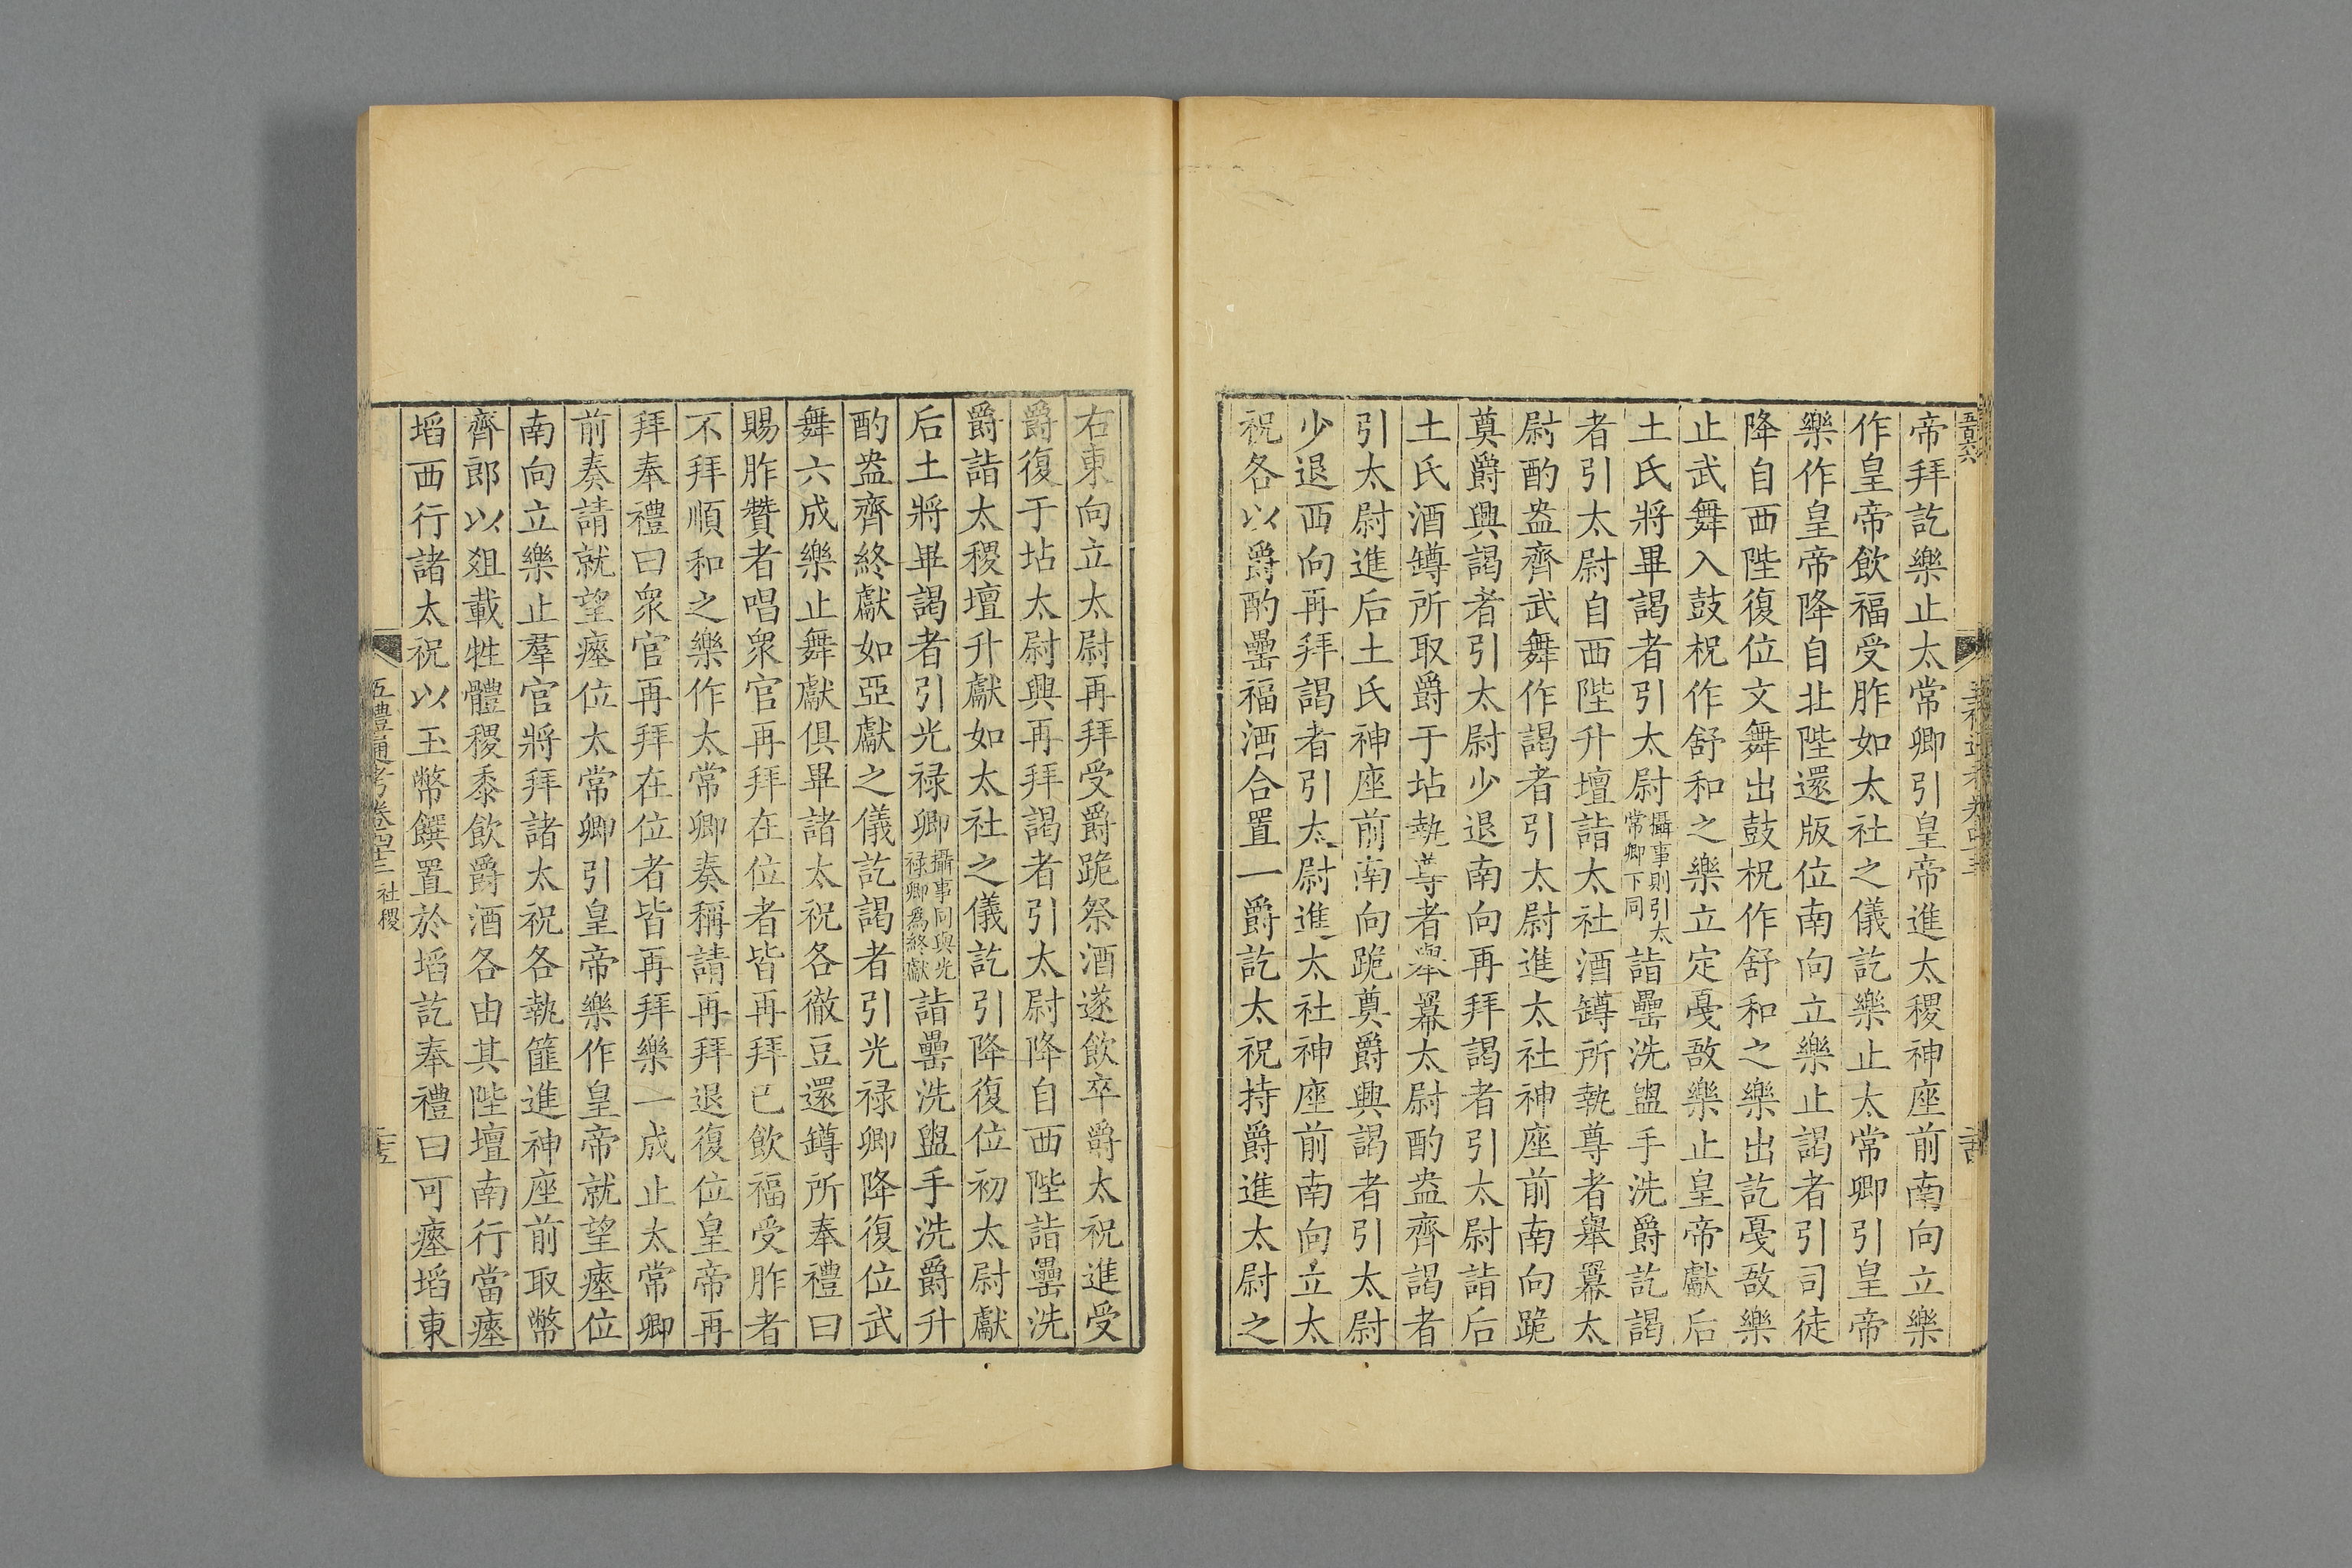 帝拜訖樂止太常卿引皇帝進太稷神座前南向立樂
作皇帝飲福受胙如太社之儀訖樂止太常卿引皇帝
樂作皇帝降自北陛還版位南向立樂止謁者引司徒
降自西陛復位文舞出鼓柷作舒和之樂出訖戞敔樂
止武舞入鼓柷作舒和之樂立定戞敔樂止皇帝獻后
土氏將畢謁者引太尉攝事則引太常卿下同詣罍洗盥手洗爵訖謁
者引太尉自西陛升壇詣太社酒罇所執尊者舉羃太
尉酌盎齊武舞作謁者引太尉進太社神座前南向跪
奠爵興謁者引太尉少退南向再拜謁者引太尉詣后
土氏酒罇所取爵于坫執尊者舉羃太尉酌盎齊謁者
引太尉進后土氏神座前南向跪奠爵興謁者引太尉
少退西向再拜謁者引太尉進太社神座前南向立太
祝各以爵酌罍福酒合置一爵訖太祝持爵進太尉之
右東向立太尉再拜受爵跪祭酒遂飲卒爵太祝進受
爵復于坫太尉興再拜謁者引太尉降自西陛詣罍洗
爵詣太稷壇升獻如太社之儀訖引降復位初太尉獻
后土將畢謁者引光禄卿攝事同與光禄卿爲終獻詣罍洗盥手洗爵升
酌盎齊終獻如亞獻之儀訖謁者引光禄卿降復位武
舞六成樂止舞獻俱畢諸太祝各徹豆還罇所奉禮曰
賜胙贊者唱衆官再拜在位者皆再拜已飲福受胙者
不拜順和之樂作太常卿奏稱請再拜退復位皇帝再
拜奉禮曰衆官再拜在位者皆再拜樂一成止太常卿
前奏請就望瘞位太常卿引皇帝樂作皇帝就望瘞位
南向立樂止羣官將拜諸太祝各執篚進神座前取幣
齊郎以爼載牲體稷黍飲爵酒各由其陛壇南行當瘞
埳西行諸太祝以玉幣饌置於埳訖奉禮曰可瘞埳東
五禮通考卷四十三 社稷